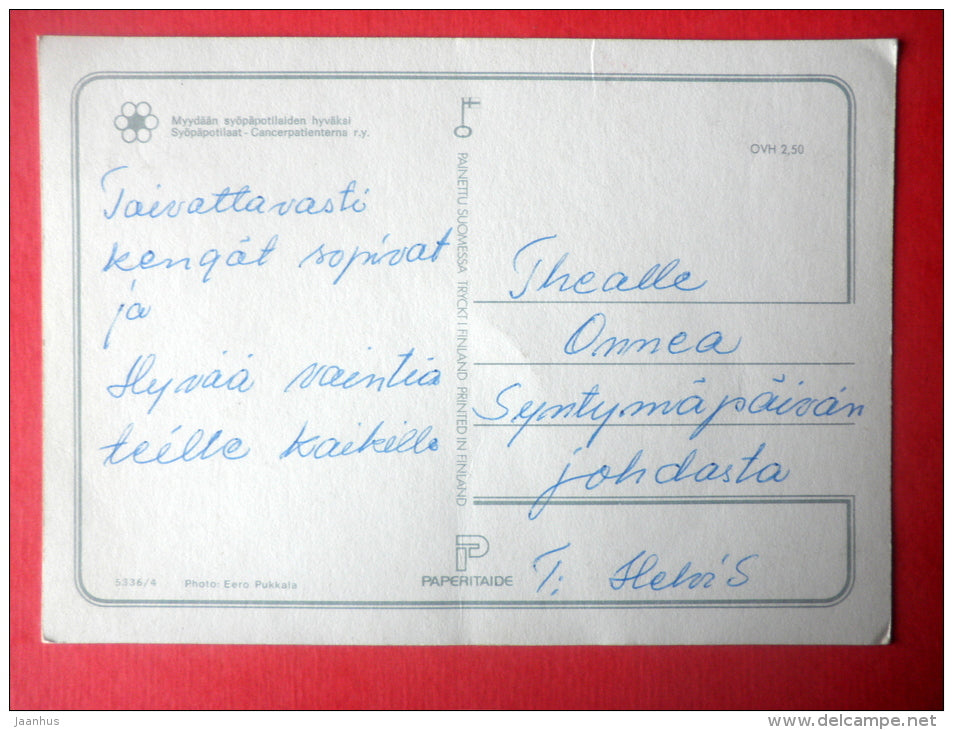 Myydään syöpäpotilaiden hyväksi
Syöpäpotilaat - Cancerpatienterna r.y.
Toivottavasti
kengät sopivat
ja
Hyvää vointia
teille kaikille
5336/4 Photo: Eero Pukkala
PAINETTU SUOMESSA TRYCKT I FINLAND PRINTED IN FINLAND
PAPERITAIDE
OVH 2,50
Thealle
Onnea
Syntymäpäivän
johdosta
T: Helvi S
Jaanhus
www.delcampe.net